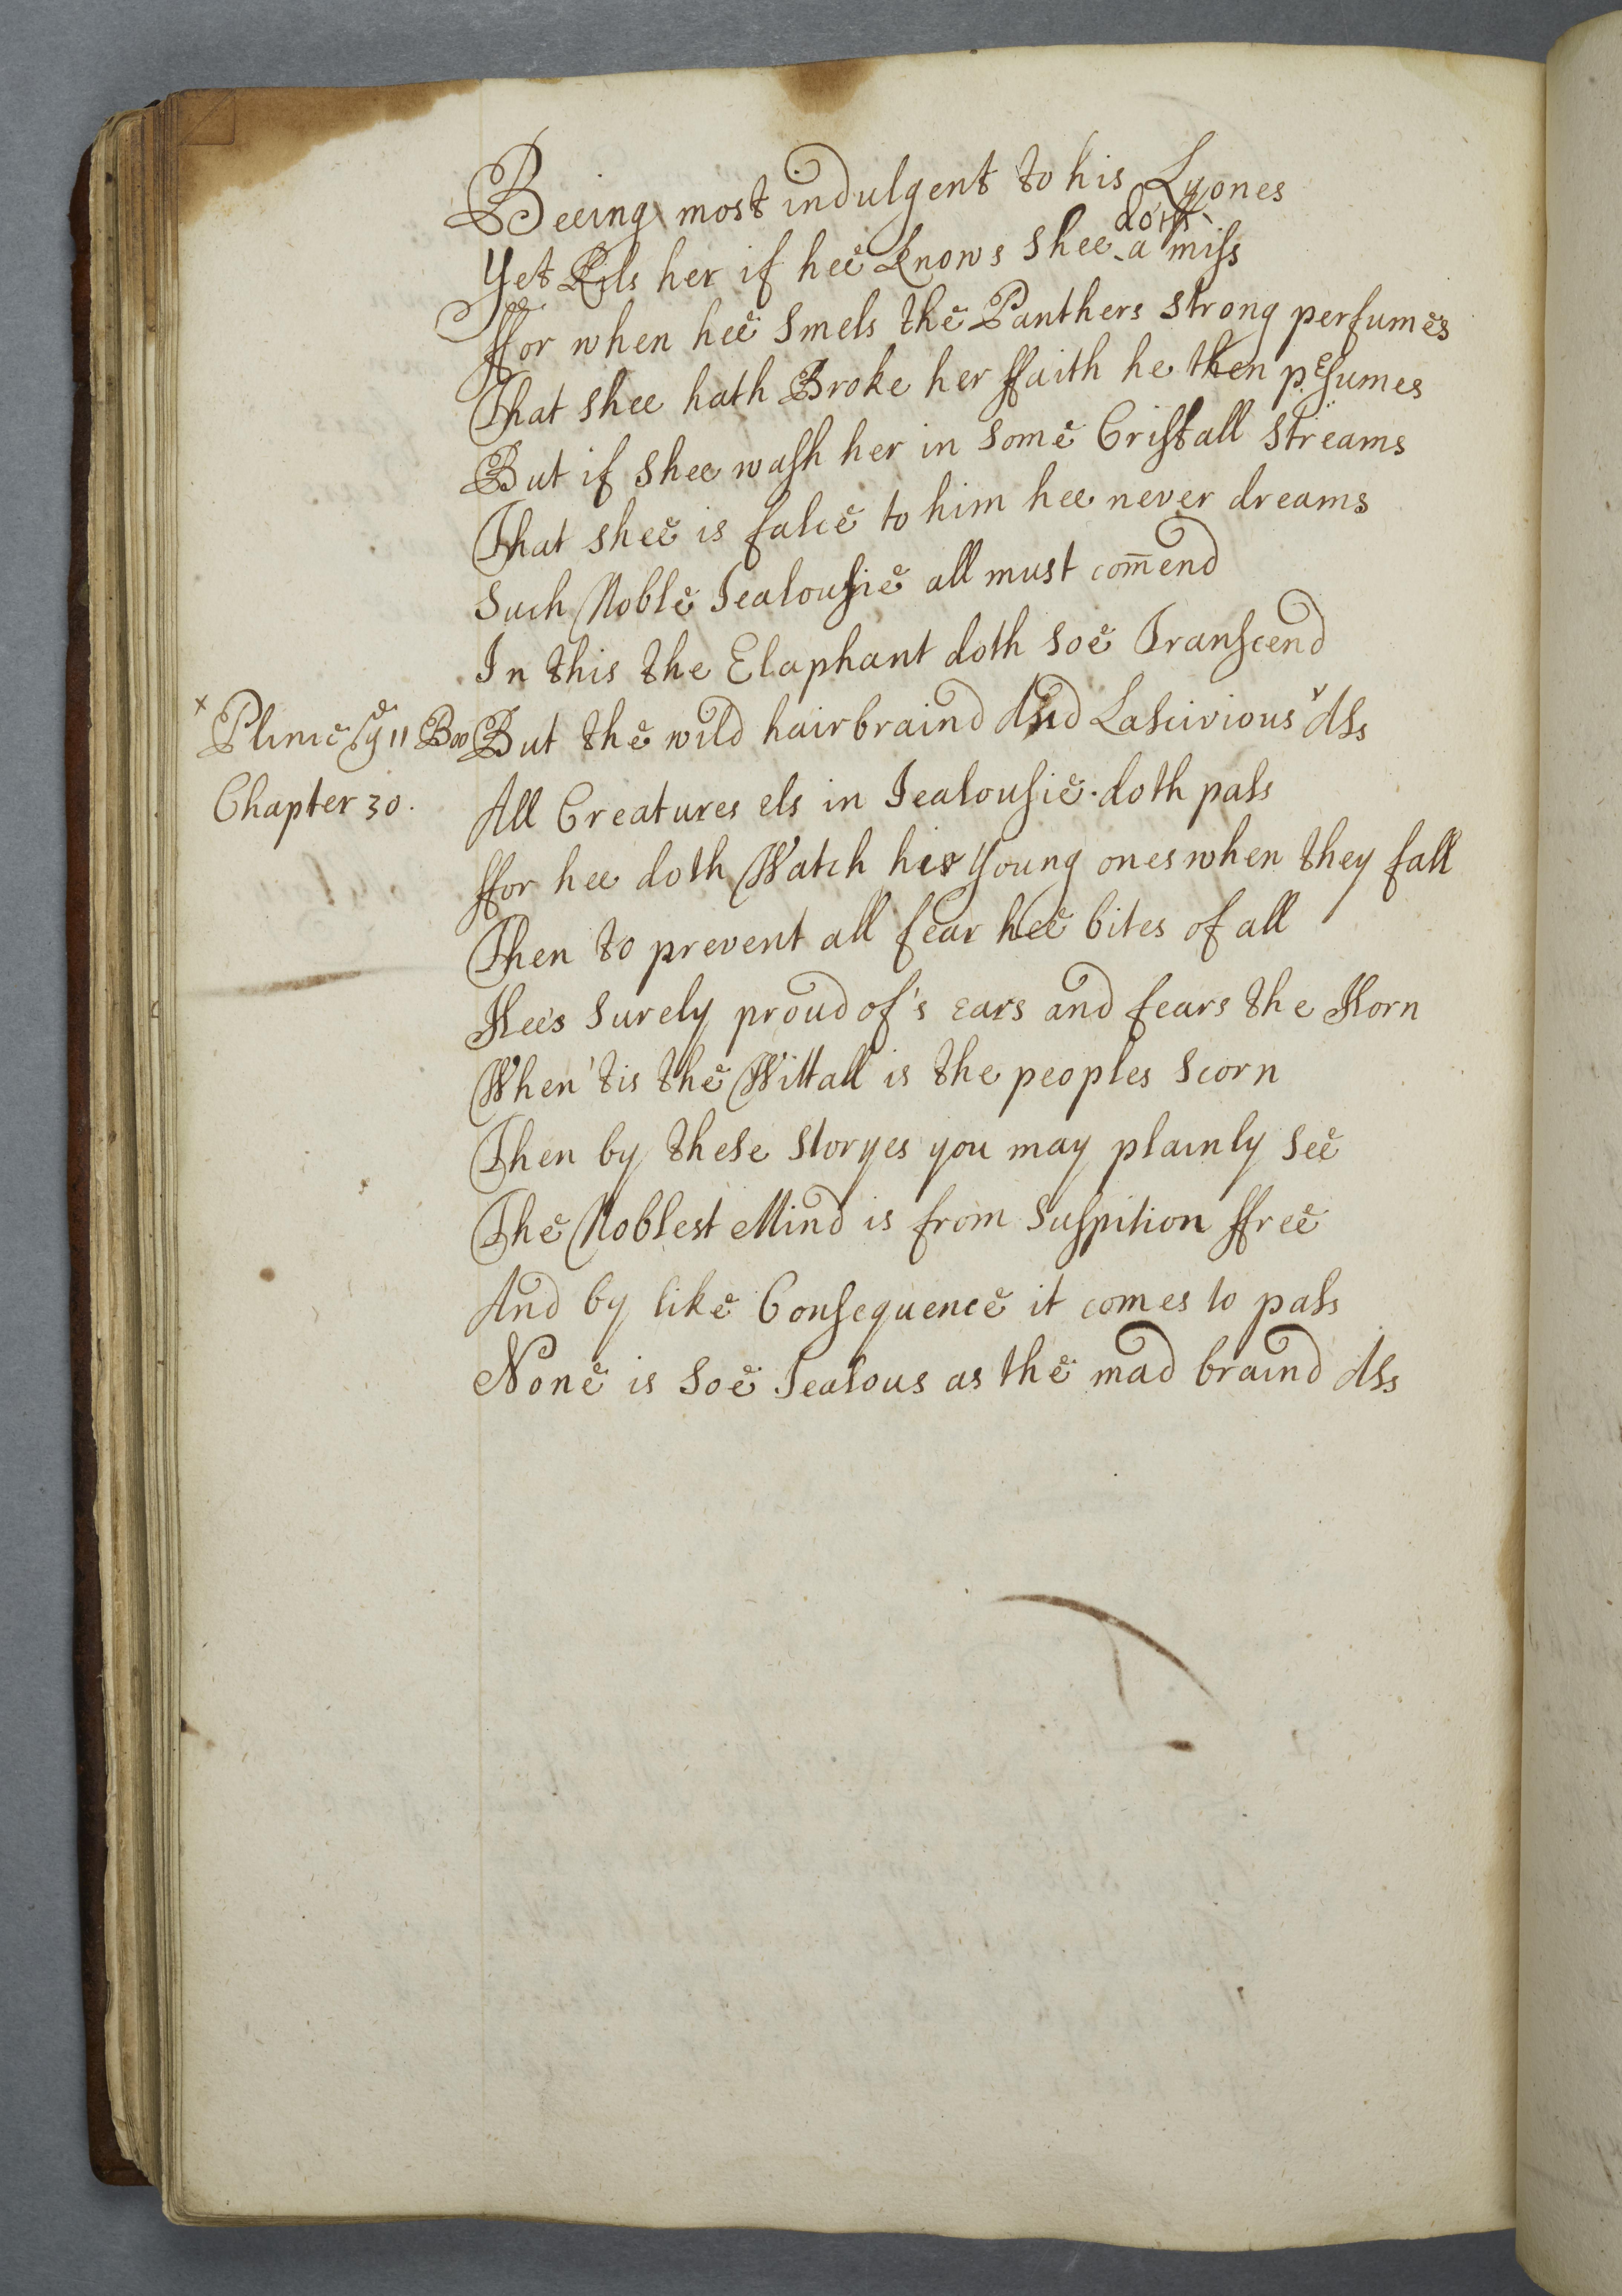 Beeing most indulgent to his Lyones
Yet Kils her if hee knows shee doth a miss
ffor when hee Smels the Panthers strong perfumes
That shee hath Broke her ffaith he then pesumes
But if shee wash her in some Cristall streams
That shee is falce to him hee never dreams
Such Noble Jealousie all must com̄end
In this the Elaphant doth soe Transcend
x
Plinie ye 11 Boo
But the wild hairbraind And Lascivious x Ass
Chapter 30.
All Creatures els in Jealousie doth pass
ffor hee doth Watch his Young ones when they fall
Then to prevent all fear hee bites of all
Hee's surely proud of's ears and fears the Horn
When 'tis the Wittall is the peoples scorn
Then by these storyes you may plainly see
The Noblest Mind is from Suspition ffree
And by like Consequence it comes to pass
None is soe Jealous as the mad braind Ass